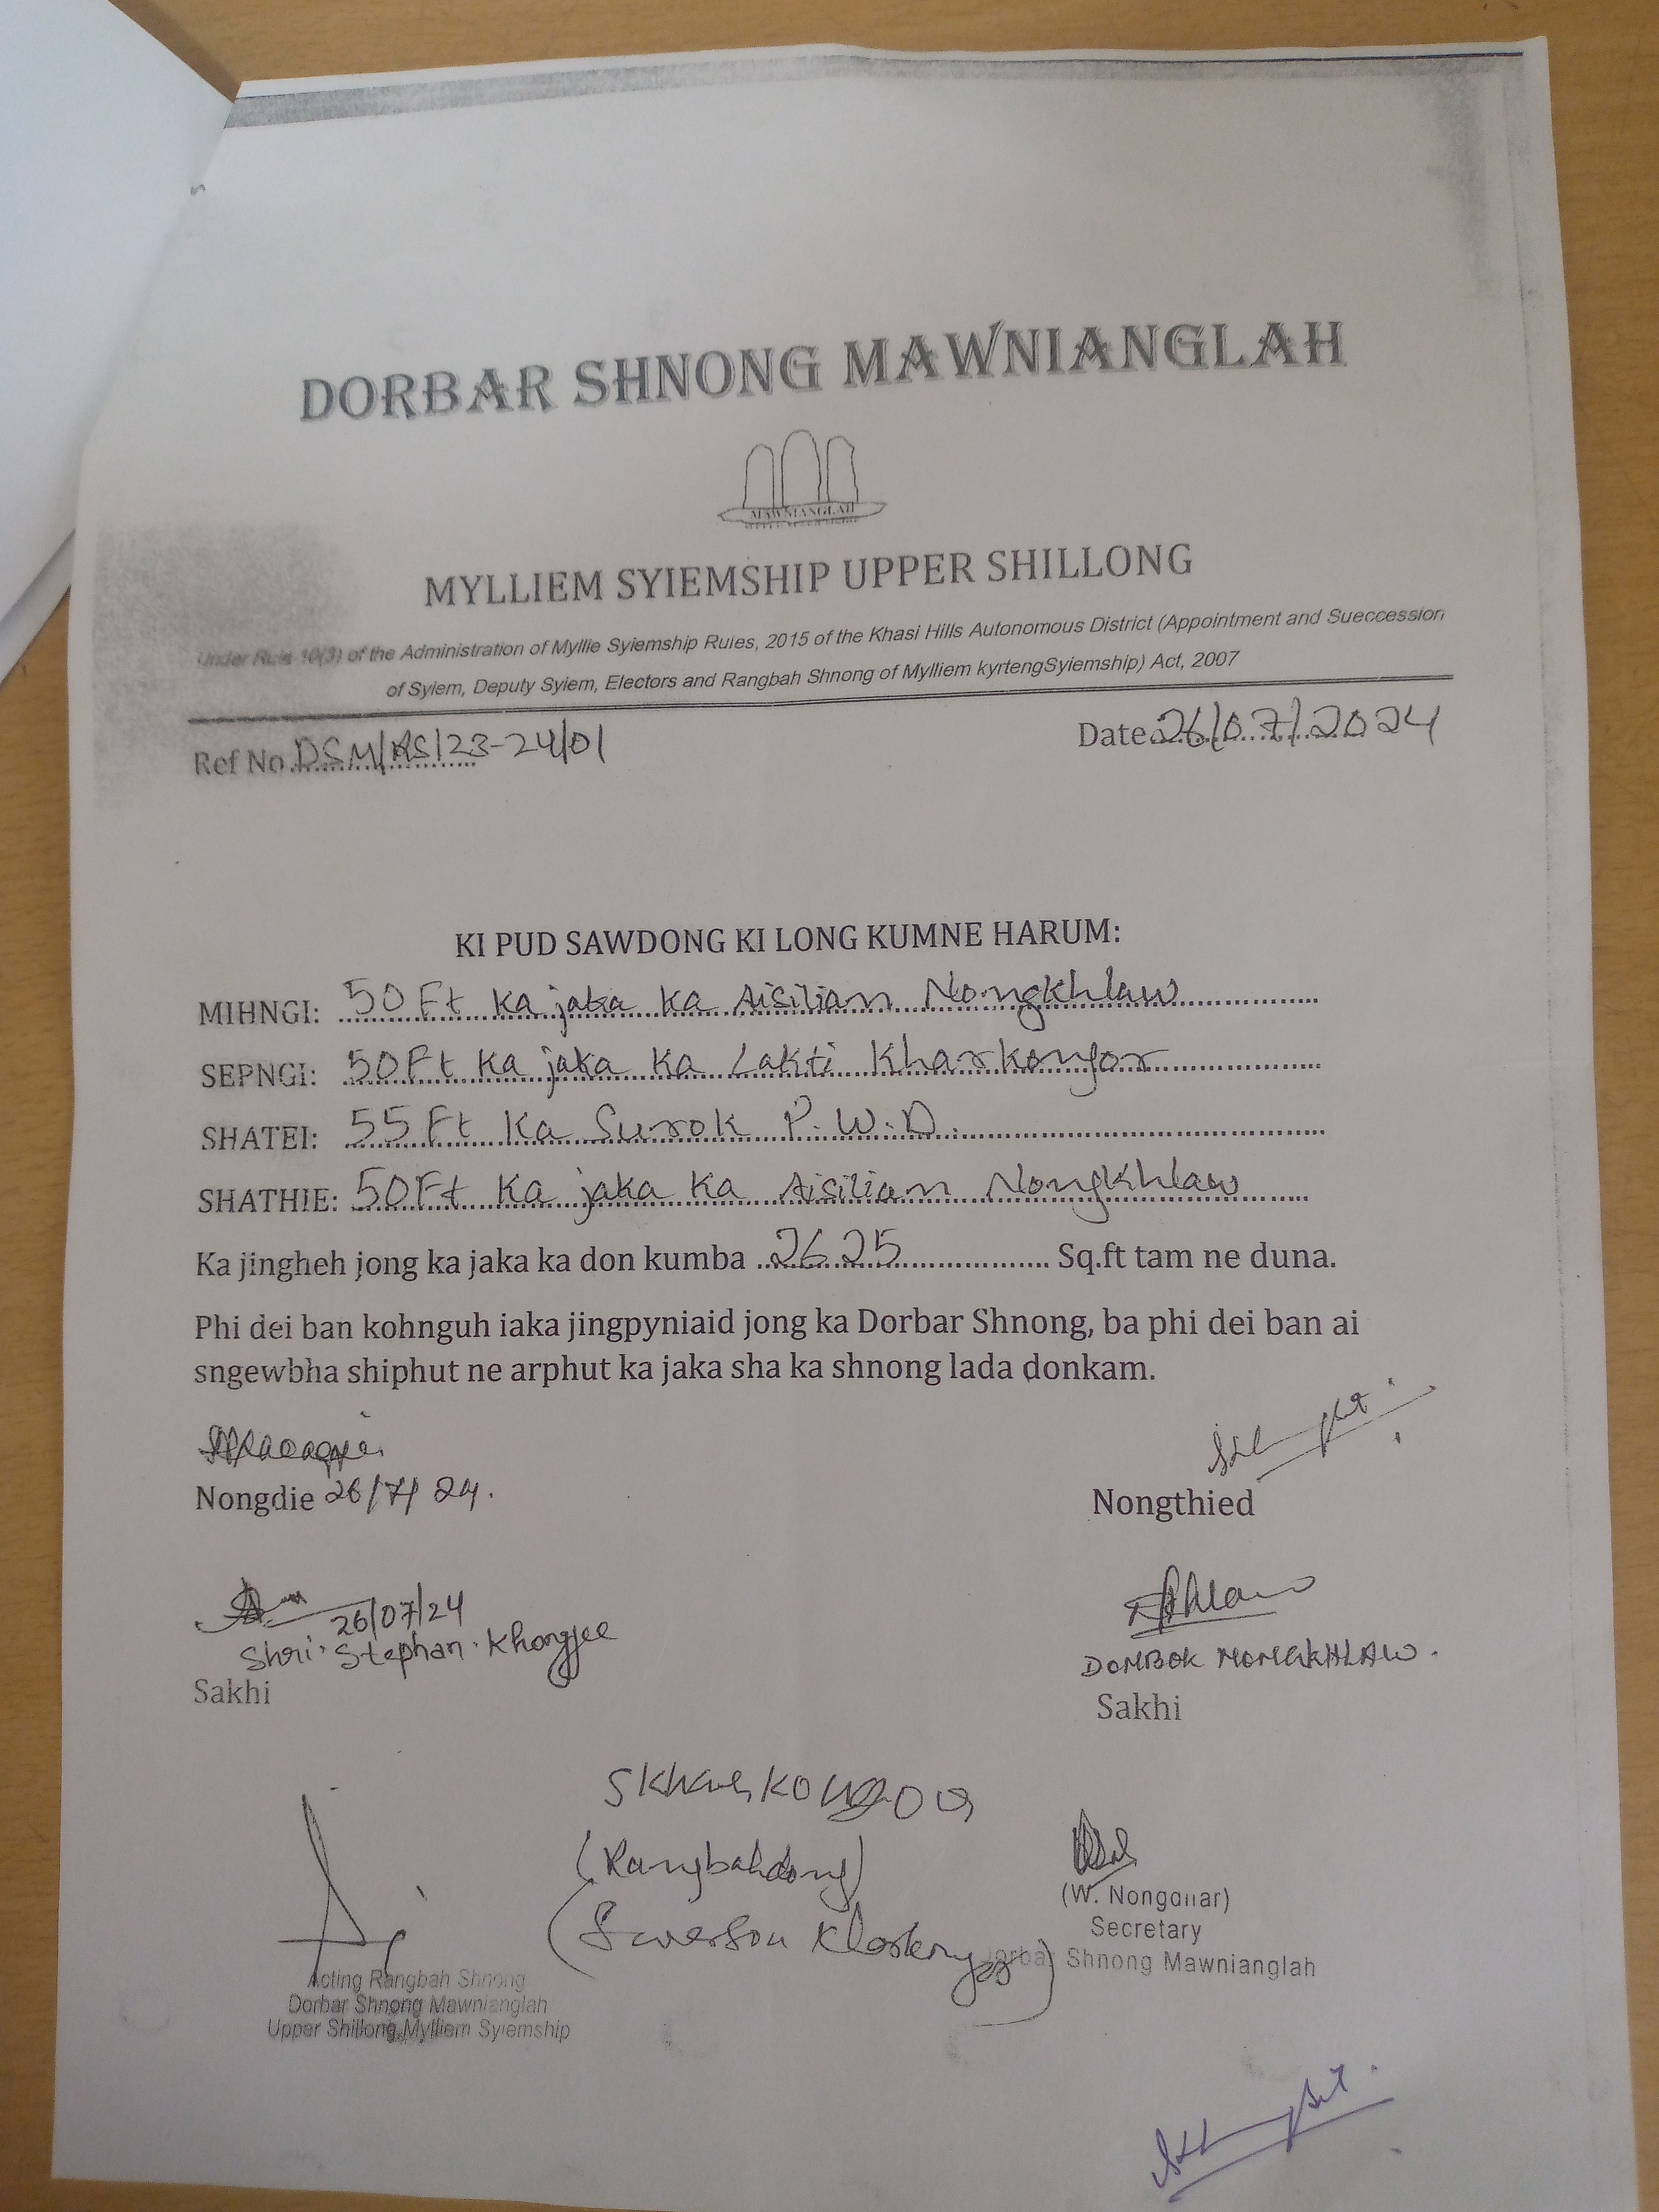 DORBAR SHNONG MAWNIANGLAH
MAWNIANGLAH
MYLLIEM SYIEMSHIP UPPER SHILLONG
Under Rule 10(3) of the Administration of Myllie Syiemship Rules, 2015 of the Khasi Hills Autonomous District (Appointment and Sueccession
of Syiem, Deputy Syiem, Electors and Rangbah Shnong of Mylliem kyrtengSyiemship) Act, 2007
Ref No. DSM/RS/23-24/01
Date: 26/07/2024
KI PUD SAWDONG KI LONG KUMNE HARUM:
MIHNGI: 50 Ft Ka jaka Ka Aisilian Nongkhlaw
SEPNGI: 50 Ft Ka jaka Ka Lakti Kharkongor
SHATEI: 55 Ft Ka Surok P.W.D.
SHATHIE: 50 Ft Ka jaka Ka Aisilian Nongkhlaw
Ka jingheh jong ka jaka ka don kumba 2625 Sq.ft tam ne duna.
Phi dei ban kohnguh iaka jingpyniaid jong ka Dorbar Shnong, ba phi dei ban ai
sngewbha shiphut ne arphut ka jaka sha ka shnong lada donkam.
Nongdie 26/7/24.
Nongthied
26/07/24
Shri. Stephan. Khongjee
Sakhi
DOMBOK NONGKHLAW.
Sakhi
(Rangbahdong)
(W. Nongdhar)
Secretary
Dorbar Shnong Mawnianglah
Acting Rangbah Shnong
Dorbar Shnong Mawnianglah
Upper Shillong Mylliem Syiemship